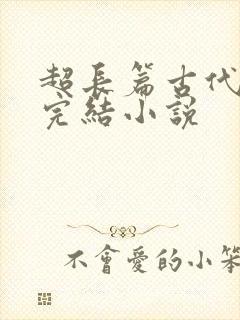 超長篇古代
完結小說
不會愛的小笨